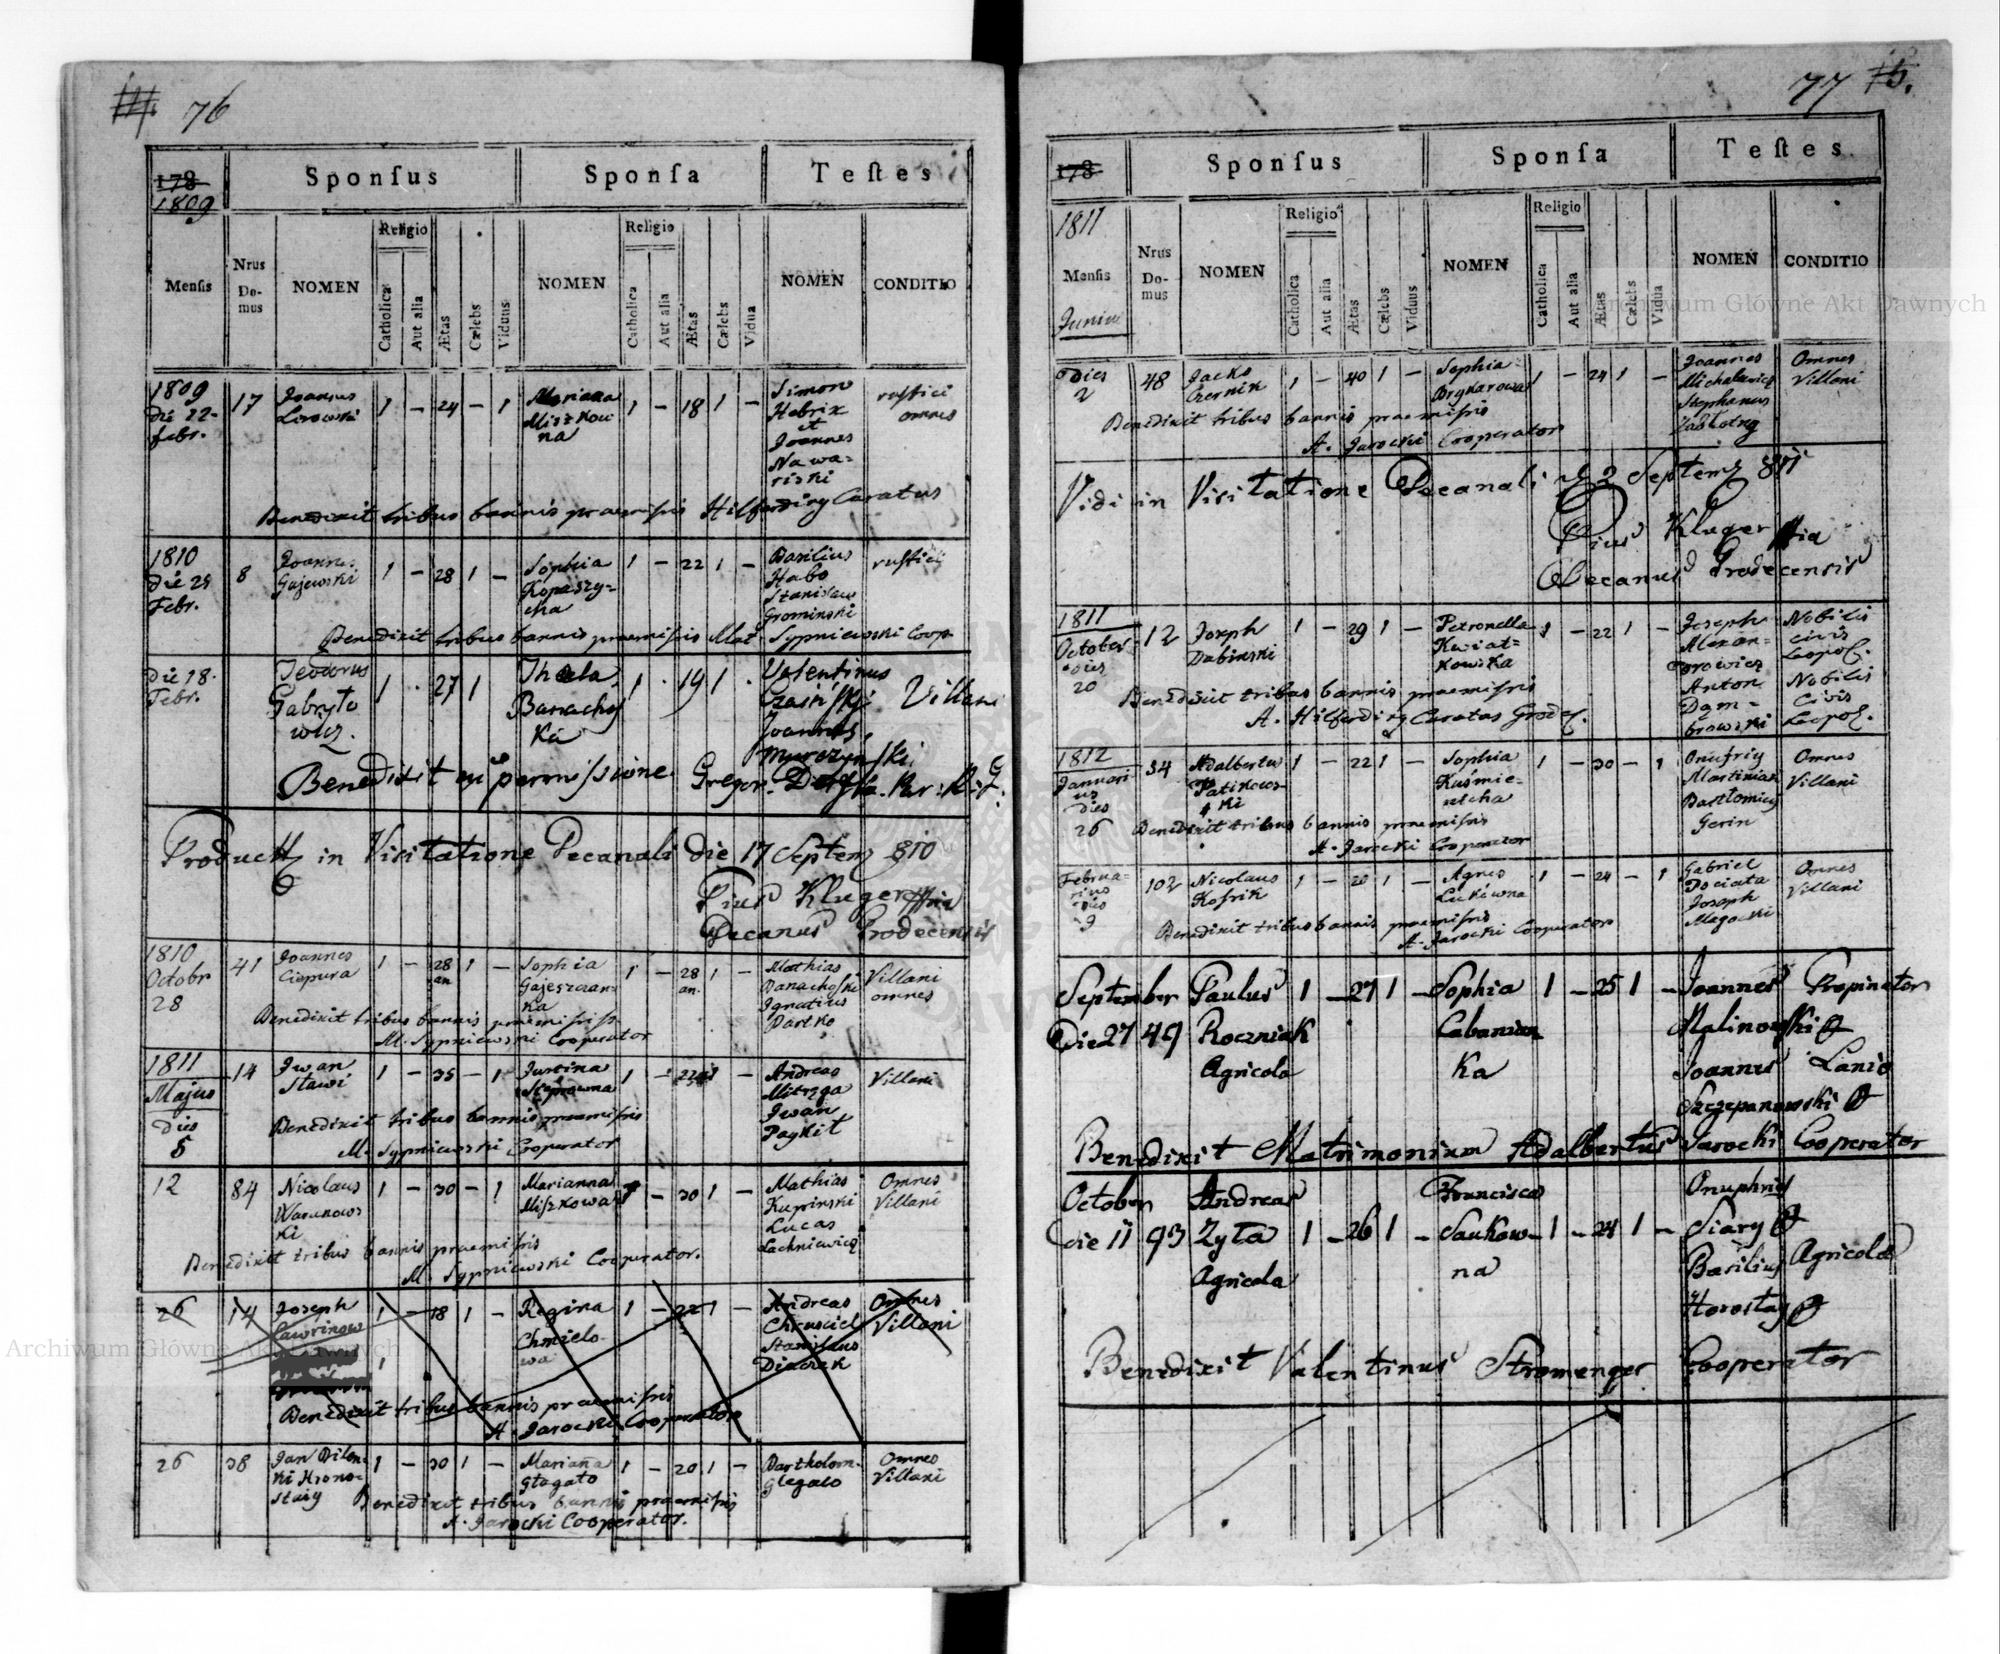 76
178
1809
Sponſus Sponſa Teſtes
Menſis Nrus Do- mus NOMEN Religio Catholica Aut alia Ætas Cælebs Viduus NOMEN Religio Catholica Aut alia Ætas Cælebs Vidua NOMEN CONDITIO
1809 17 Joannes 1 – 24 – 1 Mariana 1 – 18 1 – Simon rustici
die 22 Lisowski Miszkow Hebrix omnes
febr. na et
Joannes
Nawa-
riski
Benedixit tribus bannis praemissis Hilferding Curatus
1810 8 Joannes 1 – 28 1 – Sophia 1 – 22 1 – Basilius rustici
die 25 Gajewski Kopaszy- Habo
Febr. cha Stanislaus
Grominski
Benedixit tribus bannis praemissis Mat. Sypniewski Coop.
die 18. Teodorus 1 . 27 1 Thecla 1 . 19 1 . Valentinus Villani
Febr. Gabryło Banachy
wicz. ka Joannes
Murczynski
Benedixit ex permissione Gregor.
in Visitatione Decanali die 17 Septem 810
Pius Kluger
Decanus Grodecensis
1810 41 Joannes 1 – 28 1 – Sophia 1 – 28 1 – Mathias Villani
Octobr Ciepura an Gajeszczan- an. Banachoski omnes
28 ka Ignatius
Bartko
Benedixit tribus bannis praemissis
M. Sypniewski Cooperator
1811 14 Iwan 1 – 35 – 1 Justina 1 – – Andreas Villani
Majus Stawi Mitręga
dies Iwan
5
Benedixit tribus bannis praemissis
M. Sypniewski Cooperator
12 84 Nicolaus 1 – 30 – 1 Marianna – 30 1 – Mathias Omnes
Waranows Miszkowa Kupinski Villani
ki Lucas
Lachniewicz
Benedixit tribus bannis praemissis
M. Sypniewski Cooperator.
26 14 Joseph 1 – 18 1 – Regina 1 – 22 1 – Andreas Omnes
Lawrinow Chmielo- Chrusciel Villani
wa Stanislaus
1 Diaczek
Benedixit tribus bannis praemissis
A. Jarocki Cooperator
26 38 Jan 1 – 30 1 – Mariana 1 – 20 1 – Bartholom. Omnes
Głagało Głegało Villani
Benedixit tribus bannis praemissis
A. Jarocki Cooperator.
77
178
Sponſus Sponſa Teſtes
1811
Menſis Nrus Do- mus NOMEN Religio Catholica Aut alia Ætas Cælebs Viduus NOMEN Religio Catholica Aut alia Ætas Cælebs Vidua NOMEN CONDITIO
Junius
Dies 48 Jacko 1 – 40 1 – Sophia 1 – 24 1 – Joannes Omnes
2 Czernik Brykarowa Michalewicz Villani
Stephanus
Benedixit tribus bannis praemissis
A. Jarocki Cooperator
Vidi in Visitatione Decanali d 2 Septem 811
Pius Kluger
Decanus Grodecensis
1811
October 12 Joseph 1 – 29 1 – Petronella 1 – 22 1 – Joseph Nobilis
dies Dabinski Kwiat- Alexan- civis
20 kowska drowicz Leopol.
Anton Nobilis
Dąm- Civis
browski Leopol.
Benedixit tribus bannis praemissis
A. Hilferding Curatus Grodec.
1812
Januari 34 Adalbertus 1 – 22 1 – Sophia 1 – 30 – 1 Onufriy Omnes
us Patikows- Kuśmie- Martinian Villani
dies ki rzicha Bartłomiey
26 Gerin
Benedixit tribus bannis praemissis
A. Jarocki Cooperator
Februa- 102 Nicolaus 1 – 20 1 – Agnes 1 – 24 – 1 Gabriel Omnes
rius Kosrik Lukówna Dociata Villani
dies Joseph
9 Magocki
Benedixit tribus bannis praemissis
A. Jarocki Cooperator
September Paulus 1 – 27 1 – Sophia 1 – 25 1 – Joannes Propinator
Die 27 49 Roczniak Cabanian Malinowski
Agricola ka Joannes Lanio
Szczepanowski
Benedixit Matrimonium Adalbertus Jarocki Cooperator
October Andreas Francisca Onuphrius
die 11 93 Zyła 1 – 26 1 – Saukow- 1 – 24 1 – Siary Agricola
Agricola na Basilius
Horostay
Benedixit Valentinus Stromenger Cooperator
Archiwum Główne Akt Dawnych
Archiwum Główne Akt Dawnych